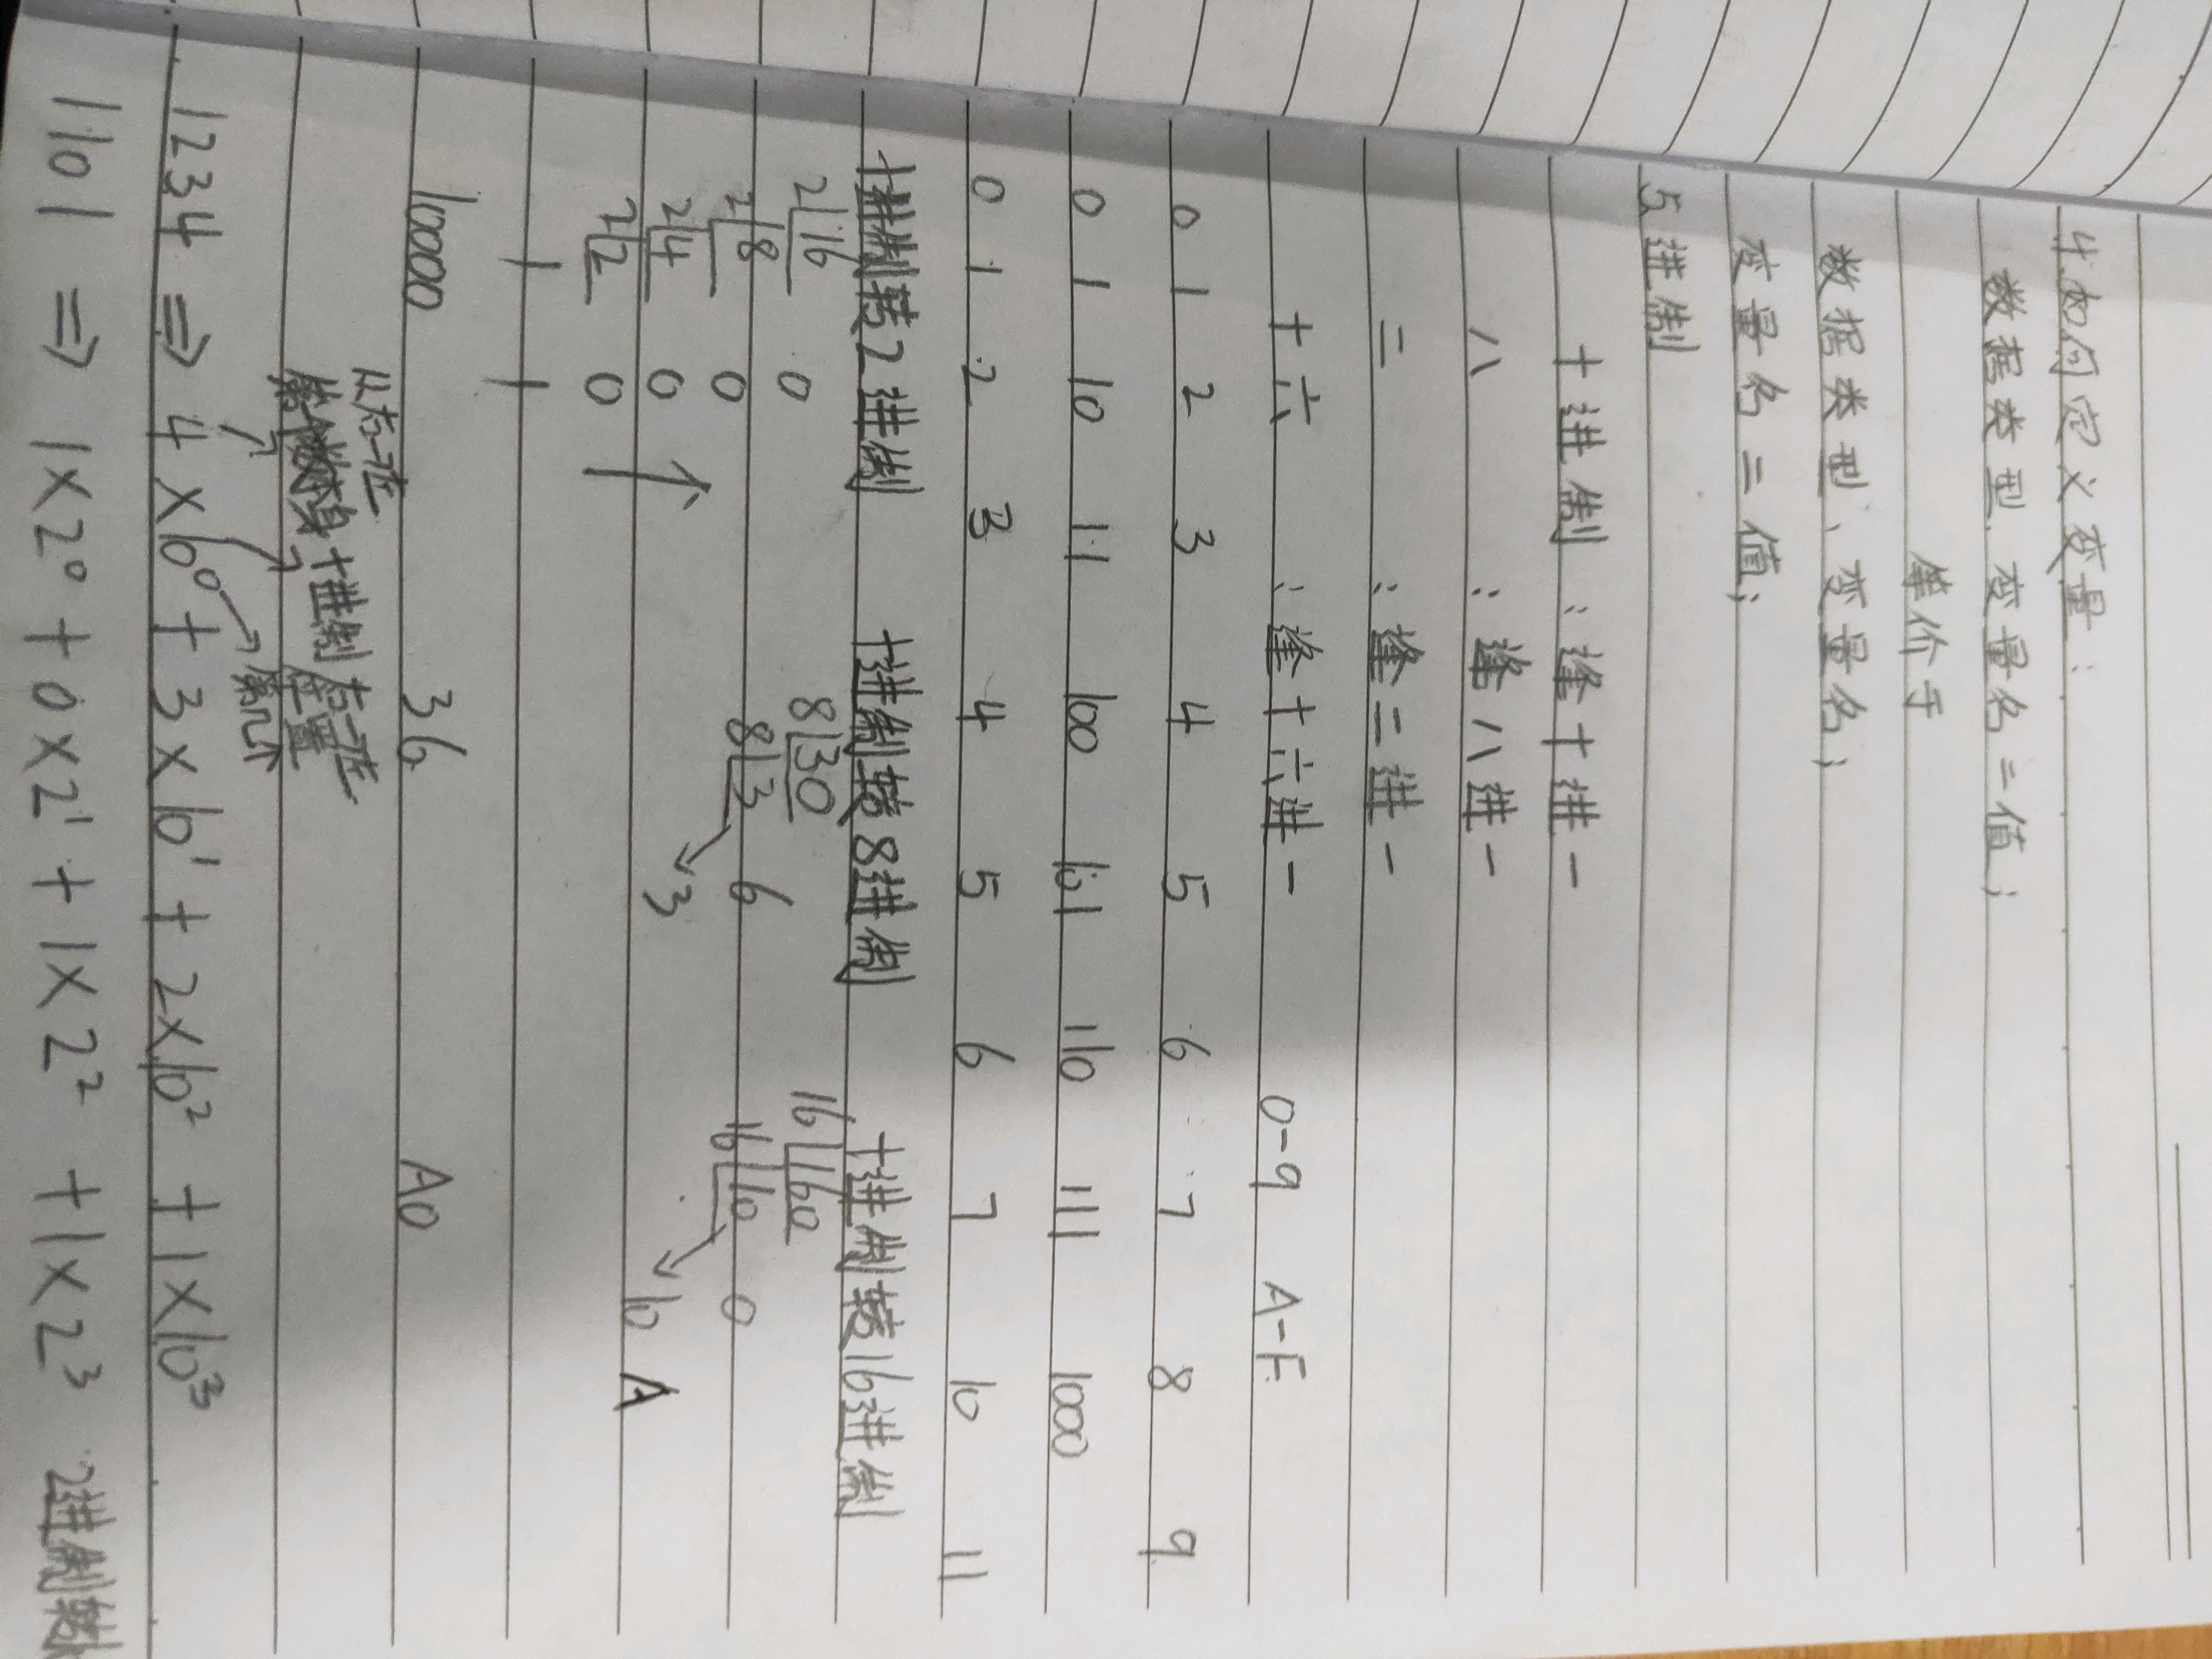 4.如何定义变量:
数据类型 变量名=值;
等价于
数据类型、变量名;
变量名=值;
5.进制
十进制:逢十进一
八:逢八进一
二:逢二进一
十六:逢十六进一 0-9 A-F
0 1 2 3 4 5 6 7 8 9
0 1 10 11 100 101 110 111 1000
0 1 2 3 4 5 6 7 10 11
十进制转2进制 十进制转8进制 十进制转16进制
2|16 0 8|30 6 16|160 0
2|8 0 8|3 → 3 16|10 → 10 A
2|4 0
2|2 0
1 1
10000 36 A0
从右一位 右一位
本身 十进制 位置
第几个
1234 => 4×10⁰ + 3×10¹ + 2×10² + 1×10³
1101 => 1×2⁰ + 0×2¹ + 1×2² + 1×2³ 2进制转